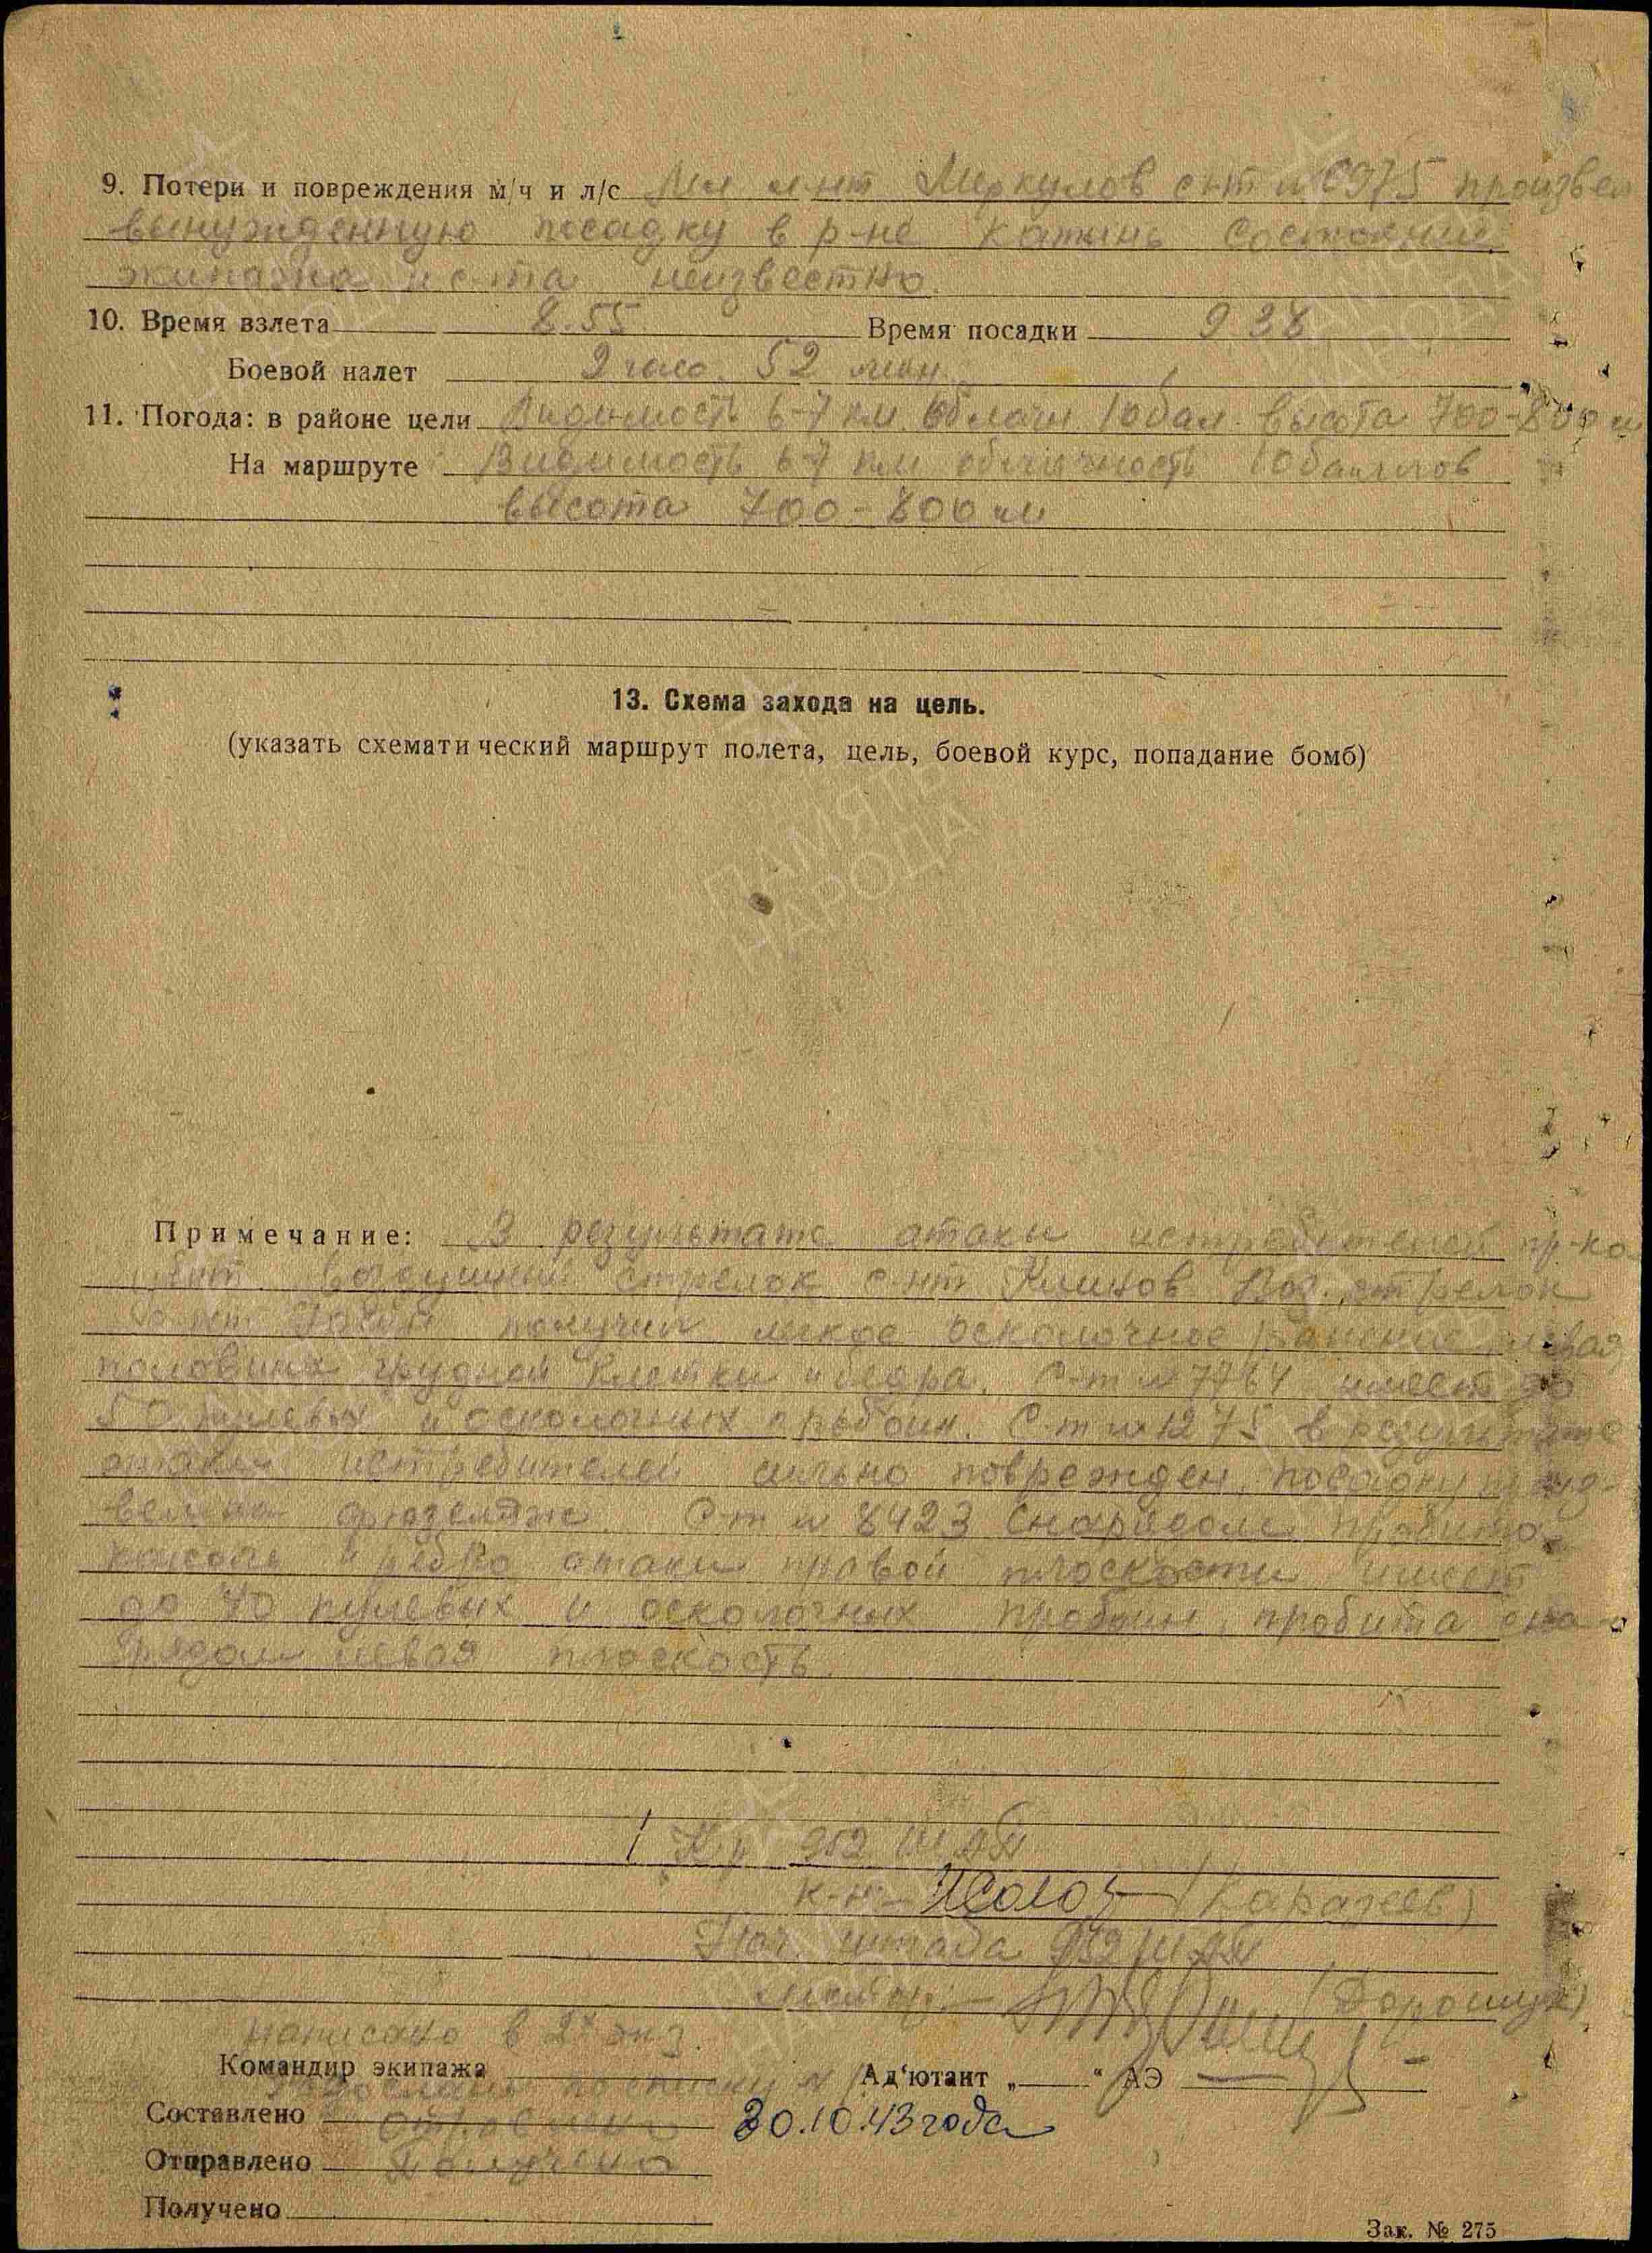 9. Потери и повреждения м/ч и л/с Мл л-нт Меркулов с-т № 6975 произвел
вынужденную посадку в р-не Катынь Состояние
экипажа и с-та неизвестно.
10. Время взлета 8.55 Время посадки 9.38
Боевой налет 2 часа. 52 мин.
11. Погода: в районе цели Видимость 6-7 км. Облачн. 10 бал. высота 700-800 м
На маршруте Видимость 6-7 км облачность 10 баллов
высота 700-800 м
13. Схема захода на цель.
(указать схематический маршрут полета, цель, боевой курс, попадание бомб)
ПАМЯТЬ
НАРОДА
Примечание: В результате атаки истребителей пр-ка
убит воздушный стрелок с-нт Климов Воз. стрелок
получил легкое осколочное ранение левая
половина грудной клетки и бедра. С-т № 7764 имеет до
50 пулевых и осколочных пробоин. С-т № 1275 в результате
атаки истребителей сильно поврежден, посадку произ-
вел на фюзеляж. С-т № 8423 снарядом пробита
консоль и ребро атаки правой плоскости имеет
до 70 пулевых и осколочных пробоин, пробита сна-
рядом левая плоскость.
952 ШАП
к-н (Каразеев)
Нач. штаба 952 ШАП
майор (Дорошук)
написано в 2х экз.
Командир экипажа Ад'ютант „ “ АЭ
Разослано по списку №
Составлено Отправлено 30.10.43 года
Отправлено Получено
Получено
Зак. № 275